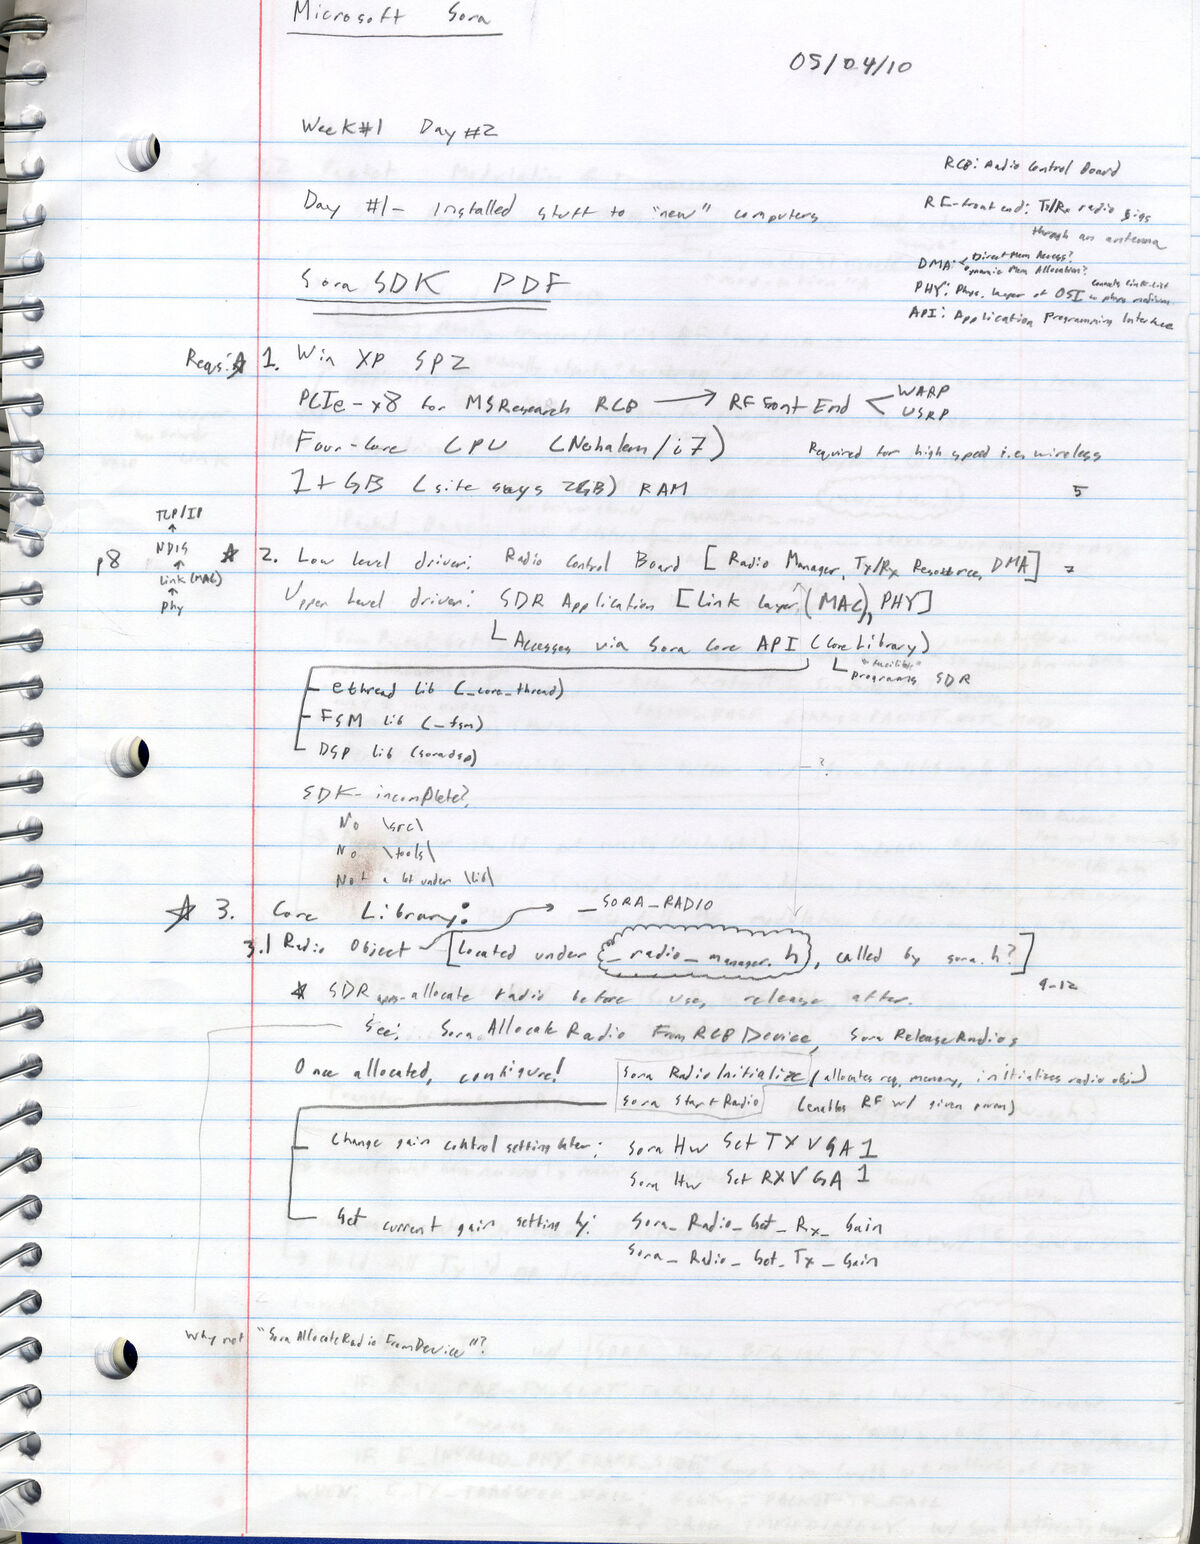 Microsoft Sora
05/04/10
Week#1 Day #2
RCB: Radio Control Board
Day #1- Installed stuff to "new" computers
RF-front end: Tx/Rx radio sigs
through an antenna
DMA: Direct Mem Access?
Dynamic Mem Allocation?
Sora SDK PDF
PHY: Phys. layer of OSI connects link-list to phys medium
API: Application Programming Interface
Reqs: 1. Win XP SP2
PCIe-x8 for MSResearch RCB → RF Front End < WARP
USRP
Four-Core CPU (Nehalem/i7)
Required for high speed i.e. wireless
1+GB (site says 2GB) RAM
5
TCP/IP
↑
NDIS
↑
Link (MAC)
↑
Phy
p8
2. Low level driver: Radio Control Board [Radio Manager, Tx/Rx Resources, DMA] 7
Upper Level driver: SDR Application [Link layer, (MAC), PHY]
Accesses via Sora Core API (Core Library)
programs SDR
- ethread lib (_core_thread)
- FSM lib (_fsm)
- DSP lib (soradsp)
?
SDK- incomplete?
No \src\
No \tools\
Not a lot under \lib\
3. Core Library:
→ _SORA_RADIO
3.1 Radio Object [Located under _radio_manager.h, called by sora.h?]
9-12
* SDR apps-allocate radio before use, release after.
See: SoraAllocateRadioFromRCBDevice, SoraReleaseRadios
Once allocated, configure! SoraRadioInitialize (allocates req. memory, initializes radio obj)
SoraStartRadio (enables RF w/ given param)
- Change gain control setting later: SoraHwSetTXVGA1
SoraHwSetRXVGA1
- Get current gain setting by: Sora_Radio_Get_Rx_Gain
Sora_Radio_Get_Tx_Gain
Why not "SoraAllocateRadioFromDevice"?